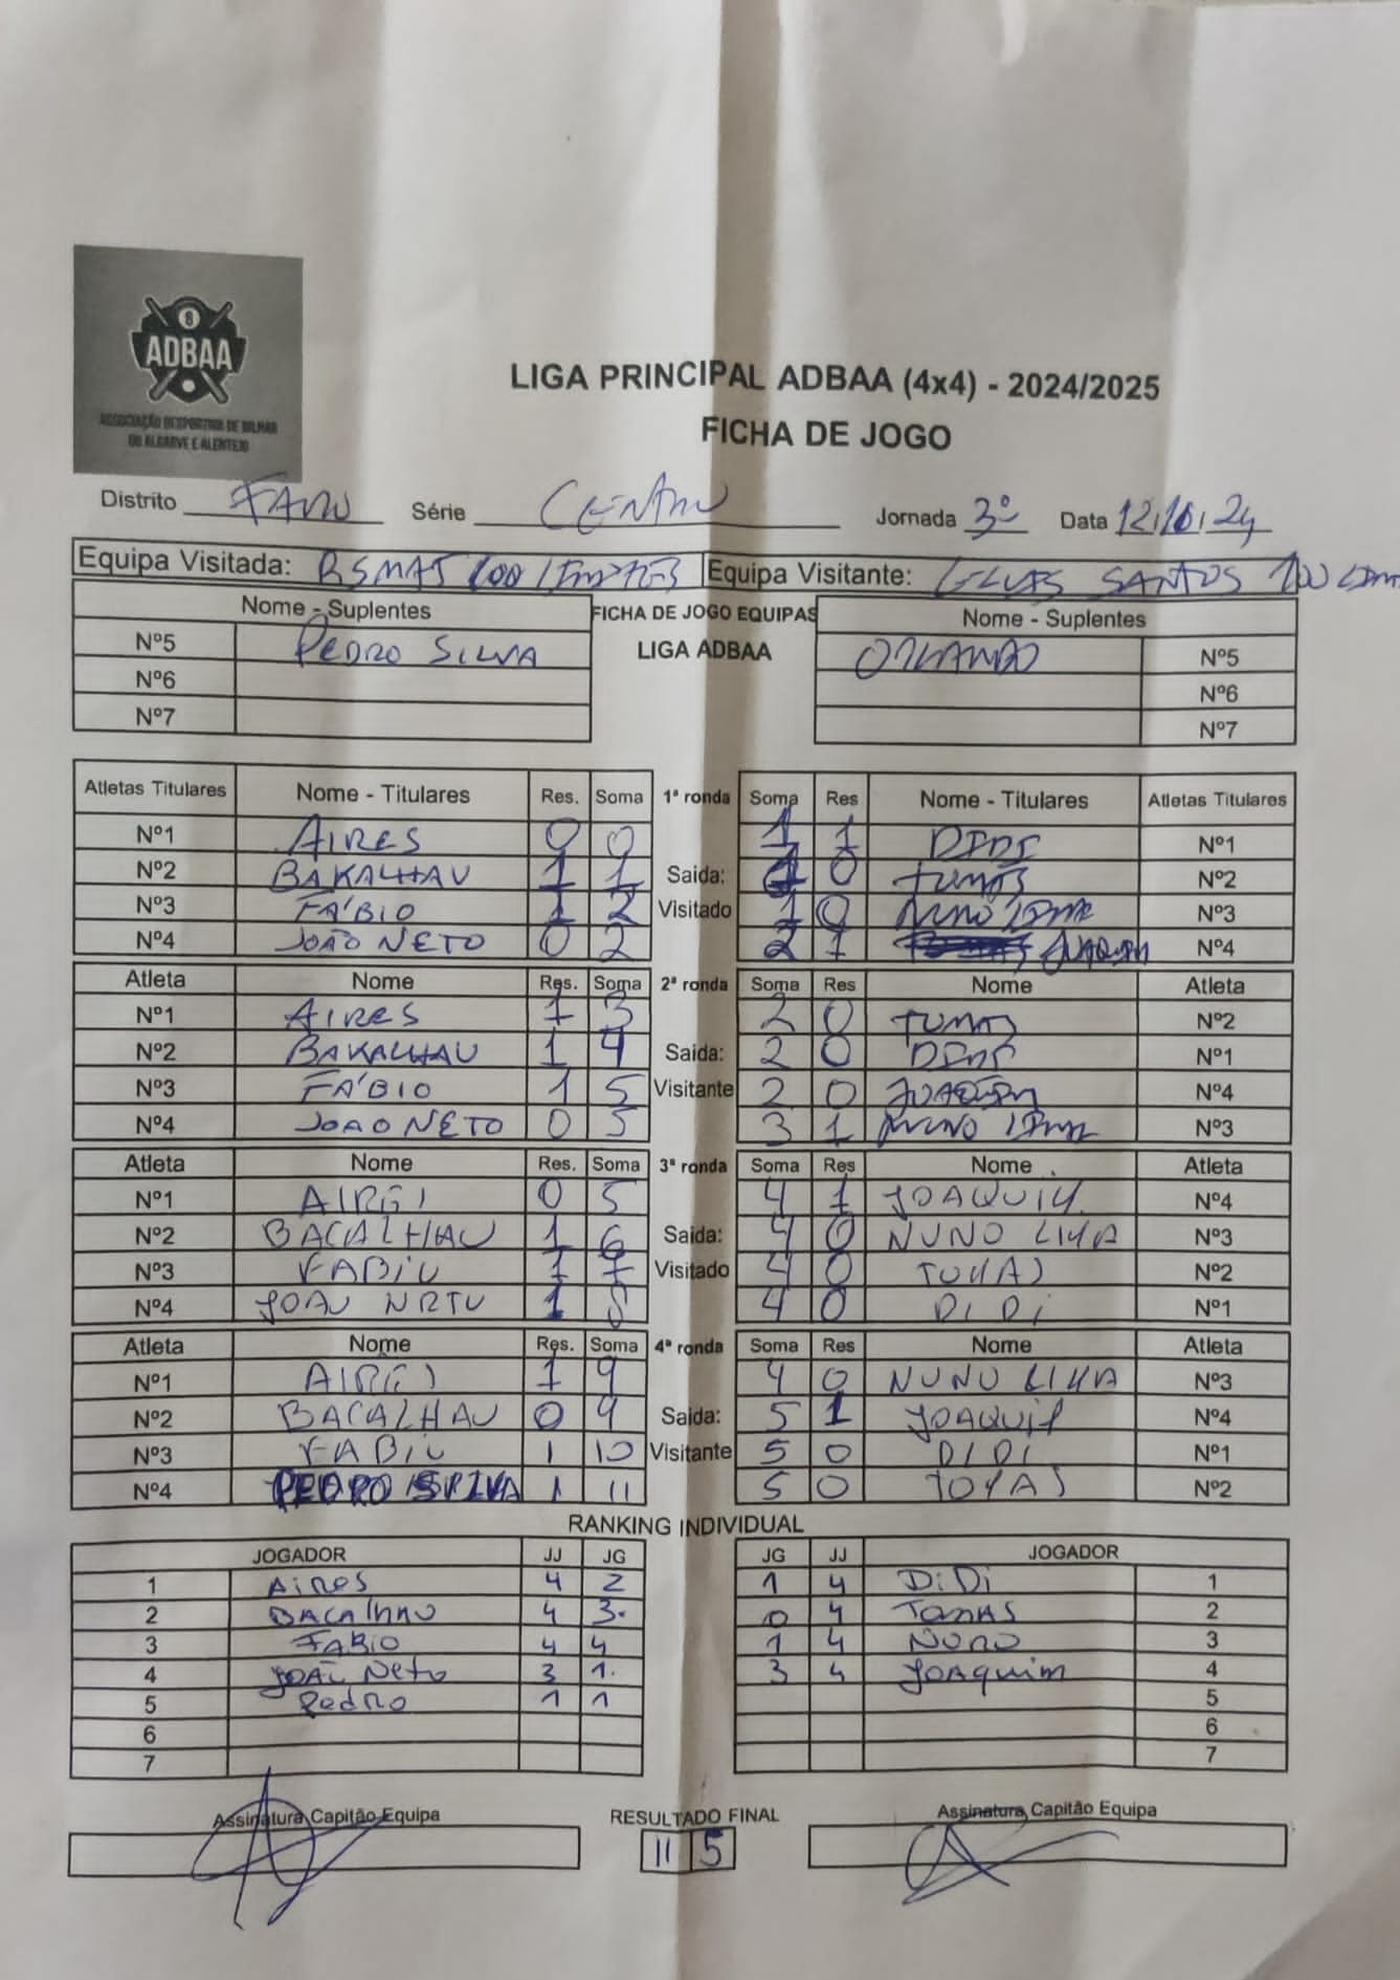 8
ADBAA
ASSOCIAÇÃO DESPORTIVA DE BILHAR
DO ALGARVE E ALENTEJO
LIGA PRINCIPAL ADBAA (4x4) - 2024/2025
FICHA DE JOGO
Distrito FARO Série CENTRO Jornada 3º Data 12/10/24
Equipa Visitada: BSMAS 100 LIMITES Equipa Visitante: SANTOS 100
Nome - Suplentes FICHA DE JOGO EQUIPAS Nome - Suplentes
Nº5 PEDRO SILVA LIGA ADBAA ORLANDO Nº5
Nº6 Nº6
Nº7 Nº7
Atletas Titulares Nome - Titulares Res. Soma 1ª ronda Soma Res Nome - Titulares Atletas Titulares
Nº1 AIRES 0 0 1 1 DIDI Nº1
Nº2 BAKALHAU 1 1 Saida: 1 0 TOMAS Nº2
Nº3 FÁBIO 1 2 Visitado 1 0 NUNO LIMA Nº3
Nº4 JOÃO NETO 0 2 2 1 JOAQUIM Nº4
Atleta Nome Res. Soma 2ª ronda Soma Res Nome Atleta
Nº1 AIRES 1 3 2 0 TOMAS Nº2
Nº2 BAKALHAU 1 4 Saida: 2 0 DIDI Nº1
Nº3 FÁBIO 1 5 Visitante 2 0 JOAQUIM Nº4
Nº4 JOAO NETO 0 5 3 1 NUNO LIMA Nº3
Atleta Nome Res. Soma 3ª ronda Soma Res Nome Atleta
Nº1 AIRES 0 5 4 1 JOAQUIM Nº4
Nº2 BACALHAU 1 6 Saida: 4 0 NUNO LIMA Nº3
Nº3 FABIO 1 7 Visitado 4 0 TOMAS Nº2
Nº4 JOAO NETO 1 8 4 0 DIDI Nº1
Atleta Nome Res. Soma 4ª ronda Soma Res Nome Atleta
Nº1 AIRES 1 9 4 0 NUNO LIMA Nº3
Nº2 BACALHAU 0 9 Saida: 5 1 JOAQUIM Nº4
Nº3 FABIO 1 10 Visitante 5 0 DIDI Nº1
Nº4 PEDRO SILVA 1 11 5 0 TOMAS Nº2
RANKING INDIVIDUAL
JOGADOR JJ JG JG JJ JOGADOR
1 Aires 4 2 1 4 DiDi 1
2 BACAlhAU 4 3. 0 4 TomAS 2
3 FABIO 4 4 1 4 NUNO 3
4 JOÃO Neto 3 1. 3 4 JOAquim 4
5 Pedro 1 1 5
6 6
7 7
Assinatura Capitão Equipa RESULTADO FINAL Assinatura Capitão Equipa
11 5